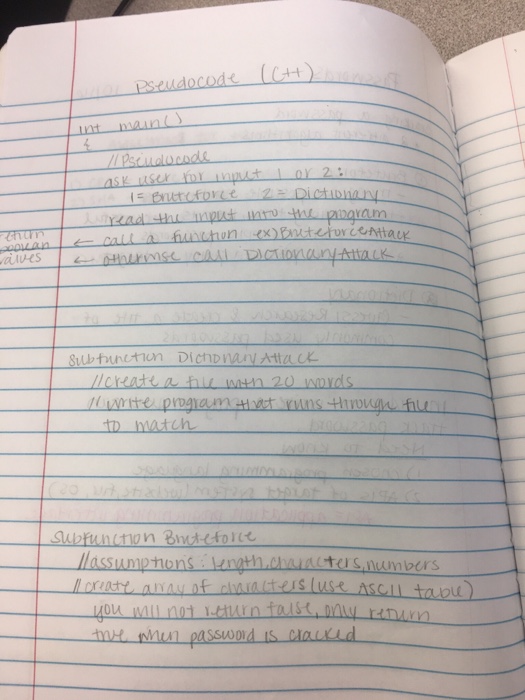 Pseudocode (C++)
int main()
{
//Pseudocode
ask user for input 1 or 2:
1= Bruteforce 2= Dictionary
read the input into the program
return boolean values
← call a function ex) BruteforceAttack
← otherwise call DictionaryAttack
Subfunction Dictionary Attack
//create a file with 20 words
//write program that runs through file
to match
Subfunction Bruteforce
//assumptions: length, characters, numbers
//create array of characters (use ASCII table)
you will not return false, only return
true when password is cracked